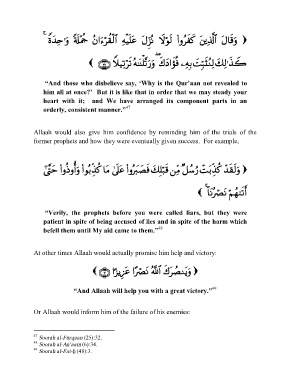 ﴿ وَقَالَ الَّذِينَ كَفَرُوا لَوْلَا نُزِّلَ عَلَيْهِ الْقُرْءَانُ جُمْلَةً وَاحِدَةً ۚ
كَذَٰلِكَ لِنُثَبِّتَ بِهِۦ فُؤَادَكَ ۖ وَرَتَّلْنَٰهُ تَرْتِيلًا ﴾
“And those who disbelieve say, ‘Why is the Qur’aan not revealed to
him all at once?’ But it is like that in order that we may steady your
heart with it; and We have arranged its component parts in an
orderly, consistent manner.”47
Allaah would also give him confidence by reminding him of the trials of the
former prophets and how they were eventually given success. For example,
﴿ وَلَقَدْ كُذِّبَتْ رُسُلٌ مِّن قَبْلِكَ فَصَبَرُوا عَلَىٰ مَا كُذِّبُوا وَأُوذُوا حَتَّىٰ
أَتَىٰهُمْ نَصْرُنَا ۚ ﴾
“Verily, the prophets before you were called liars, but they were
patient in spite of being accused of lies and in spite of the harm which
befell them until My aid came to them.”48
At other times Allaah would promise him help and victory:
﴿ وَيَنصُرَكَ اللَّهُ نَصْرًا عَزِيزًا ﴾
“And Allaah will help you with a great victory.”49
Or Allaah would inform him of the failure of his enemies:
47 Soorah al-Furqaan (25):32.
48 Soorah al-An‘aam (6):34.
49 Soorah al-Fat-h (48):3.